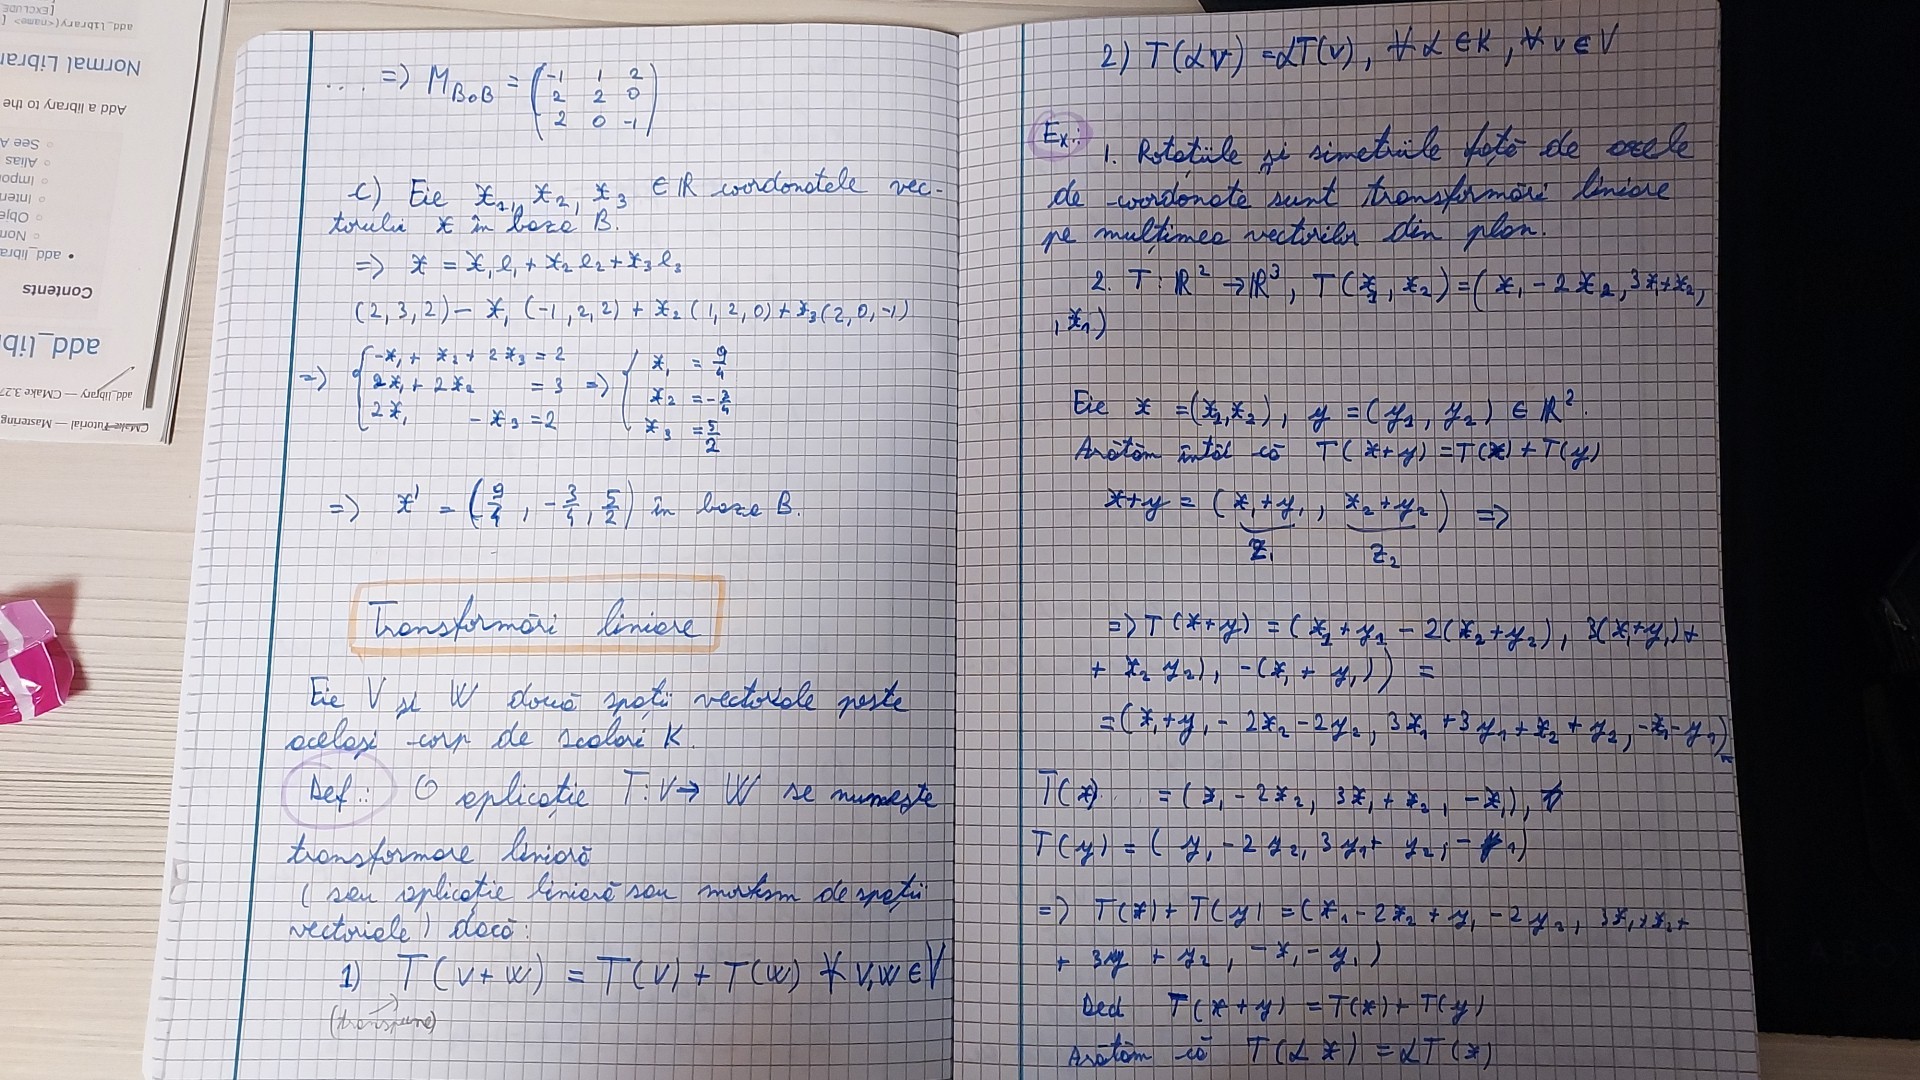 [EXCLUDE_
add_library(<name> [
Normal Librar
Add a library to the
See A
Alias
Impor
Inter
Obje
Norr
add_librar
Contents
add_libr
add_library — CMake 3.27
CMake Tutorial — Mastering
.... => M_BoB = (-1 1 2
2 2 0
2 0 -1)
c) Fie x₁, x₂, x₃ ∈ R coordonatele vec-
torului x în baza B.
=> x = x₁e₁ + x₂e₂ + x₃e₃
(2,3,2) = x₁(-1,2,2) + x₂(1,2,0) + x₃(2,0,-1)
=> { -x₁ + x₂ + 2x₃ = 2
2x₁ + 2x₂ = 3 => { x₁ = 9/4
2x₁ - x₃ = 2
x₂ = -3/4
x₃ = 5/2
=> x' = (9/4, -3/4, 5/2) în baza B.
Transformări liniare
Fie V și W două spații vectoriale peste
același corp de scalari K.
Def.: O aplicație T: V → W se numește
transformare liniară
(sau aplicație liniară sau morfism de spații
vectoriale) dacă:
1) T(v+w) = T(v) + T(w) ∀ v,w ∈ V
(transpune)
2) T(αv) = αT(v), ∀ α ∈ K, ∀ v ∈ V
Ex.:
1. Rotațiile și simetriile față de axele
de coordonate sunt transformări liniare
pe mulțimea vectorilor din plan.
2. T: R² → R³, T(x₁, x₂) = (x₁ - 2x₂, 3x₁+x₂,
, x₁)
Fie x = (x₁,x₂), y = (y₁, y₂) ∈ R².
Arătăm întâi că T(x+y) = T(x) + T(y)
x+y = (x₁+y₁, x₂+y₂) =>
z₁ z₂
=> T(x+y) = (x₁+y₁ - 2(x₂+y₂), 3(x₁+y₁)+
+ x₂ y₂), -(x₁ + y₁)) =
= (x₁+y₁ - 2x₂ - 2y₂, 3x₁ + 3y₁ + x₂ + y₂, -x₁-y₁)
T(x) .... = (x₁ - 2x₂, 3x₁ + x₂, -x₁),
T(y) = (y₁ - 2y₂, 3y₁ + y₂, -y₁)
=> T(x) + T(y) = (x₁ - 2x₂ + y₁ - 2y₂, 3x₁+x₂+
+ 3y + y₂, -x₁ - y₁)
Deci T(x+y) = T(x) + T(y)
Arătăm că T(αx) = αT(x)